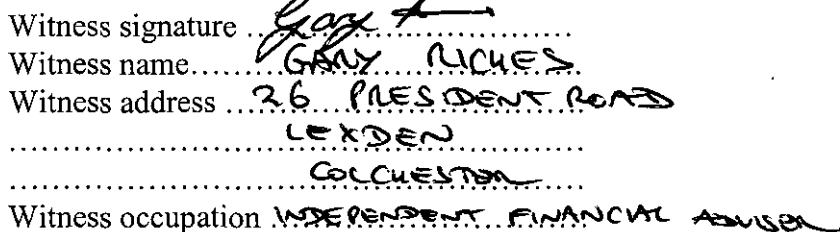 Witness signature ... Gary
Witness name....... GARY RICHES
Witness address ... 26 PRESIDENT ROAD
LEXDEN
COLCHESTER
Witness occupation INDEPENDENT FINANCIAL ADVISER